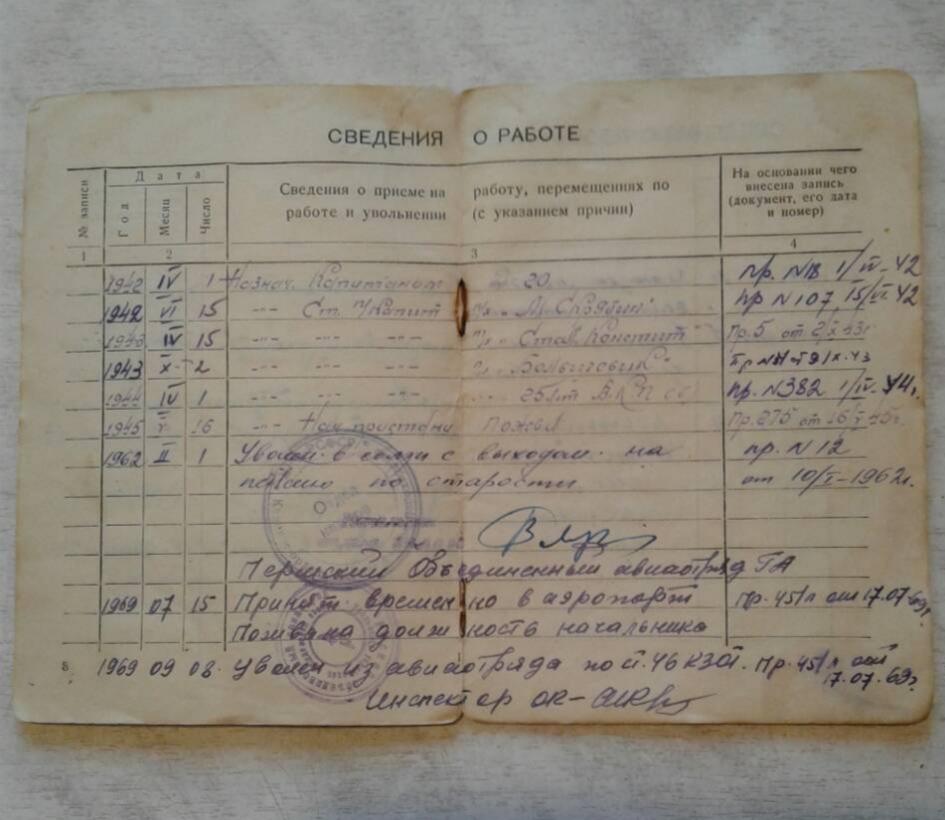 СВЕДЕНИЯ О РАБОТЕ
№ записи
Дата
Год
Месяц
Число
Сведения о приеме на работу, перемещениях по
работе и увольнении (с указанием причин)
На основании чего
внесена запись
(документ, его дата
и номер)
1 2 3 4
1942 IV 1 Назнач. Капитаном 20 Пр. N18 1/IV-42
1942 VI 15 -"- Ст. п/х Пр N107 15/VI 42
1943 IV 15 -"- -"- -"- Пр. 5 от
1943 X 2 -"- -"- -"- „Большевик"
1944 IV 1 -"- -"- -"- Пр. N382 1/IV-44г.
1945 16 -"- Нач пристани Пожва Пр. 275 от 16/V-45г.
1962 II 1 Уволен в связи с выходом на пр. N12
пенсию по старости от 10/I-1962г.
Отдел
кадров
Пермский Объединенный авиаотряд ГА
1969 07 15 Принят временно в аэропорт Пр. 45/л от 17.07.69г.
Пожва на должность начальника
8 1969 09 08. Уволен из авиаотряда по ст. 46 КЗОТ. Пр. 45/л от
17.07.69г.
Инспектор ОК-